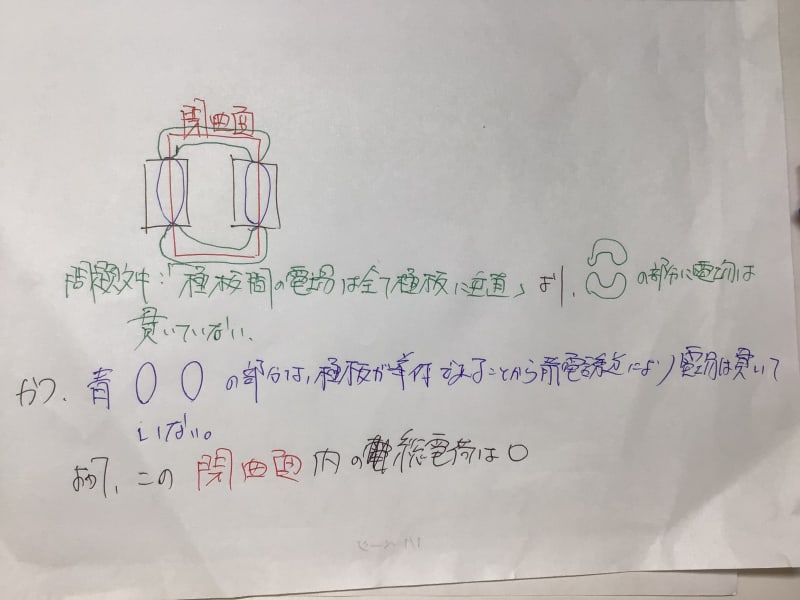 閉曲面
問題文中:「極板間の電場は全て極板に垂直」より、の部分に電場は
貫いていない.
かつ、青 の部分は、極板が導体であることから静電誘導により電場は貫いて
いない。
よって、この閉曲面内の総電荷は0